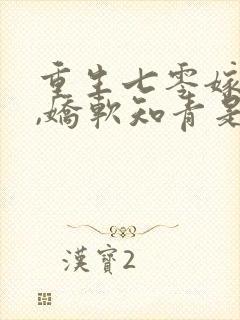 重生七零嫁
,嬌軟知青是
漢寶2